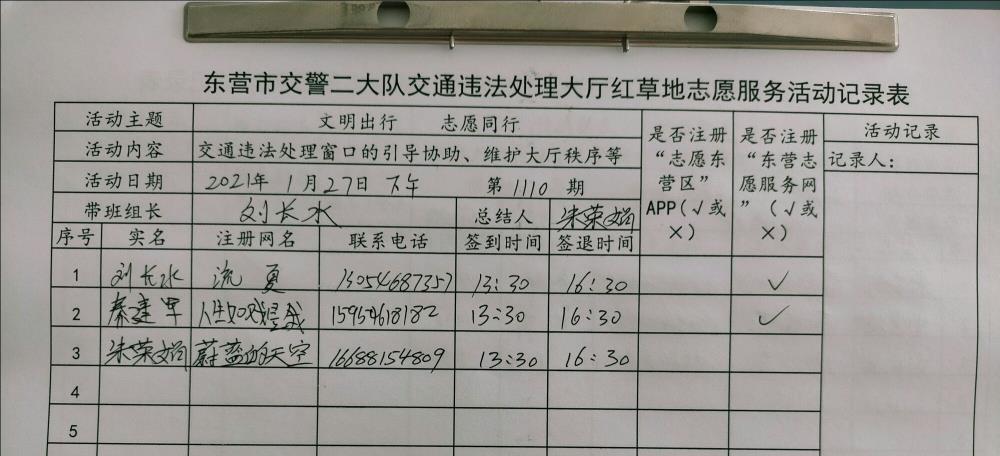 东营市交警二大队交通违法处理大厅红草地志愿服务活动记录表
活动主题 文明出行 志愿同行 是否注册“志愿东营区”APP(√或×) 是否注册“东营志愿服务网”(√或×) 活动记录
活动内容 交通违法处理窗口的引导协助、维护大厅秩序等 记录人:
活动日期 2021年1月27日下午 第1110期
带班组长 刘长水 总结人 朱荣娟
序号 实名 注册网名 联系电话 签到时间 签退时间
1 刘长水 流夏 13054687357 13:30 16:30 ✓
2 秦建军 人生如戏 15954618182 13:30 16:30 ✓
3 朱荣娟 蔚蓝的天空 16688154809 13:30 16:30
4
5